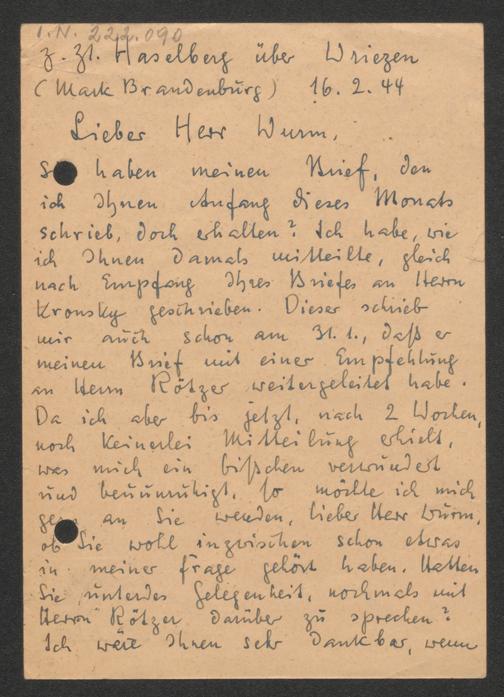 I.N. 222.090
z. Zt. Haselberg über Wriezen
(Mark Brandenburg) 16. 2. 44
Lieber Herr Wurm,
S haben meinen Brief, den
ich Ihnen Anfang dieses Monats
schrieb, doch erhalten? Ich habe, wie
ich Ihnen damals mitteilte, gleich
nach Empfang Ihres Briefes an Herrn
Kronsky geschrieben. Dieser schrieb
mir auch schon am 31. 1., daß er
meinen Brief mit einer Empfehlung
an Herrn Rötzer weitergeleitet habe.
Da ich aber bis jetzt, nach 2 Wochen,
noch keinerlei Mitteilung erhielt,
was mich ein bißchen verwundert
und beunruhigt, so möchte ich mich
ge an Sie wenden, lieber Herr Wurm,
ob Sie wohl inzwischen schon etwas
in meiner Frage gehört haben. Hatten
Sie unterdes Gelegenheit, nochmals mit
Herrn Rötzer darüber zu sprechen?
Ich wäre Ihnen sehr dankbar, wenn